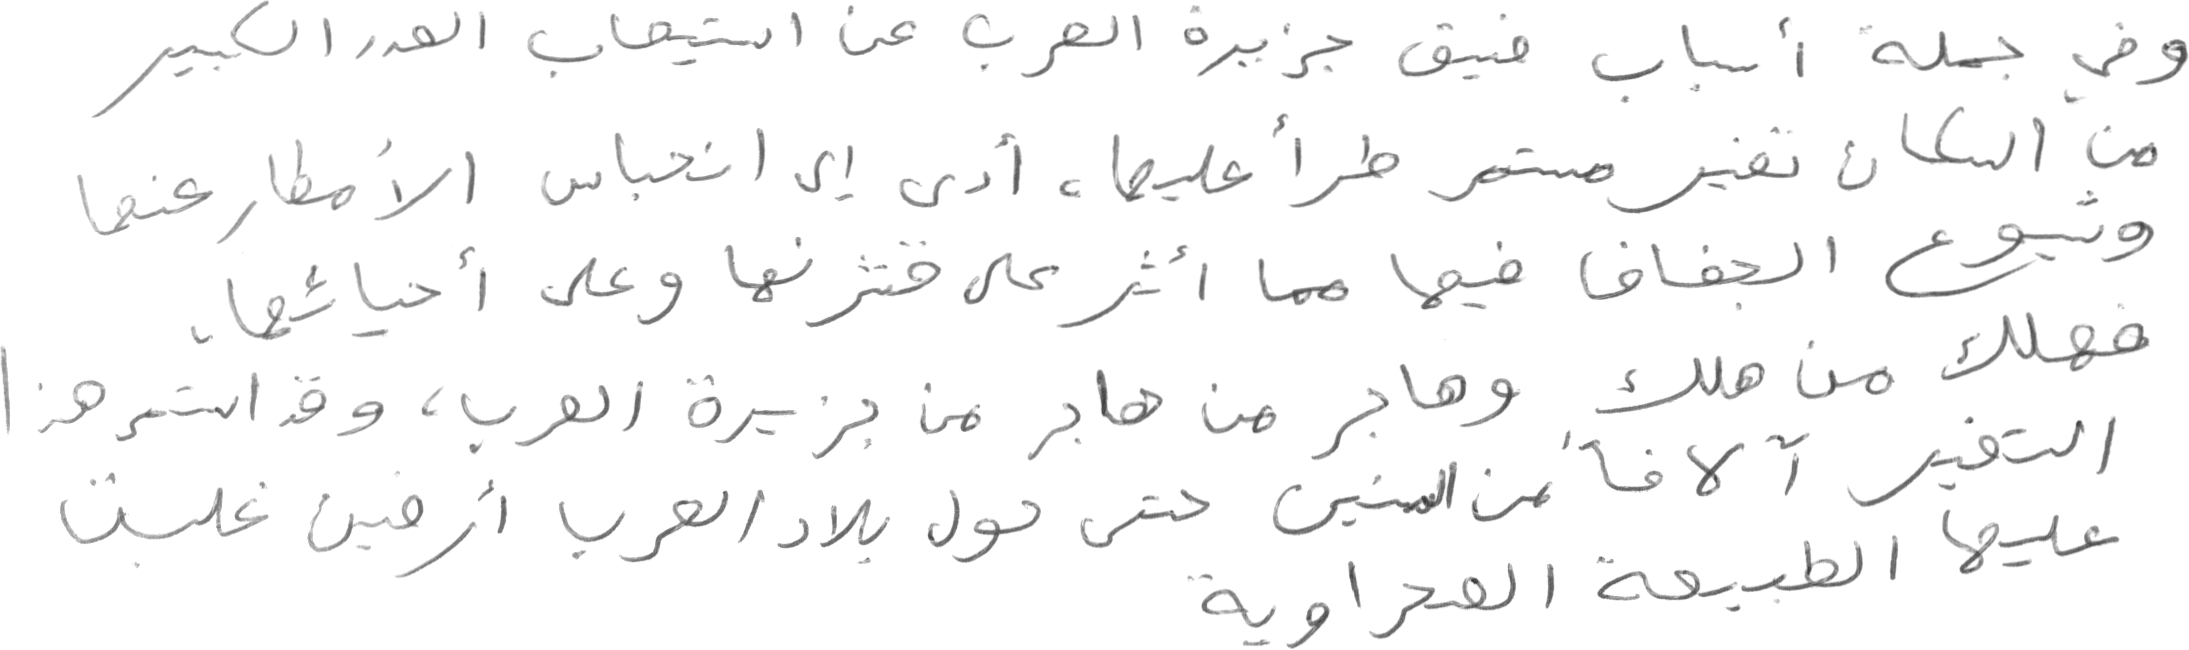 وفي جملة أسباب ضيق جزيرة العرب عن استيعاب العدد الكبير
من السكان تغير مستمر طرأ عليها، أدى إلى انحباس الأمطار عنها
وشيوع الجفاف فيها مما أثر على قشرتها وعلى أحيائها،
فهلك من هلك وهاجر من هاجر من جزيرة العرب، وقد استمر هذا
التغير آلافاً من السنين حتى حول بلاد العرب أرضين غلبت
عليها الطبيعة الصحراوية